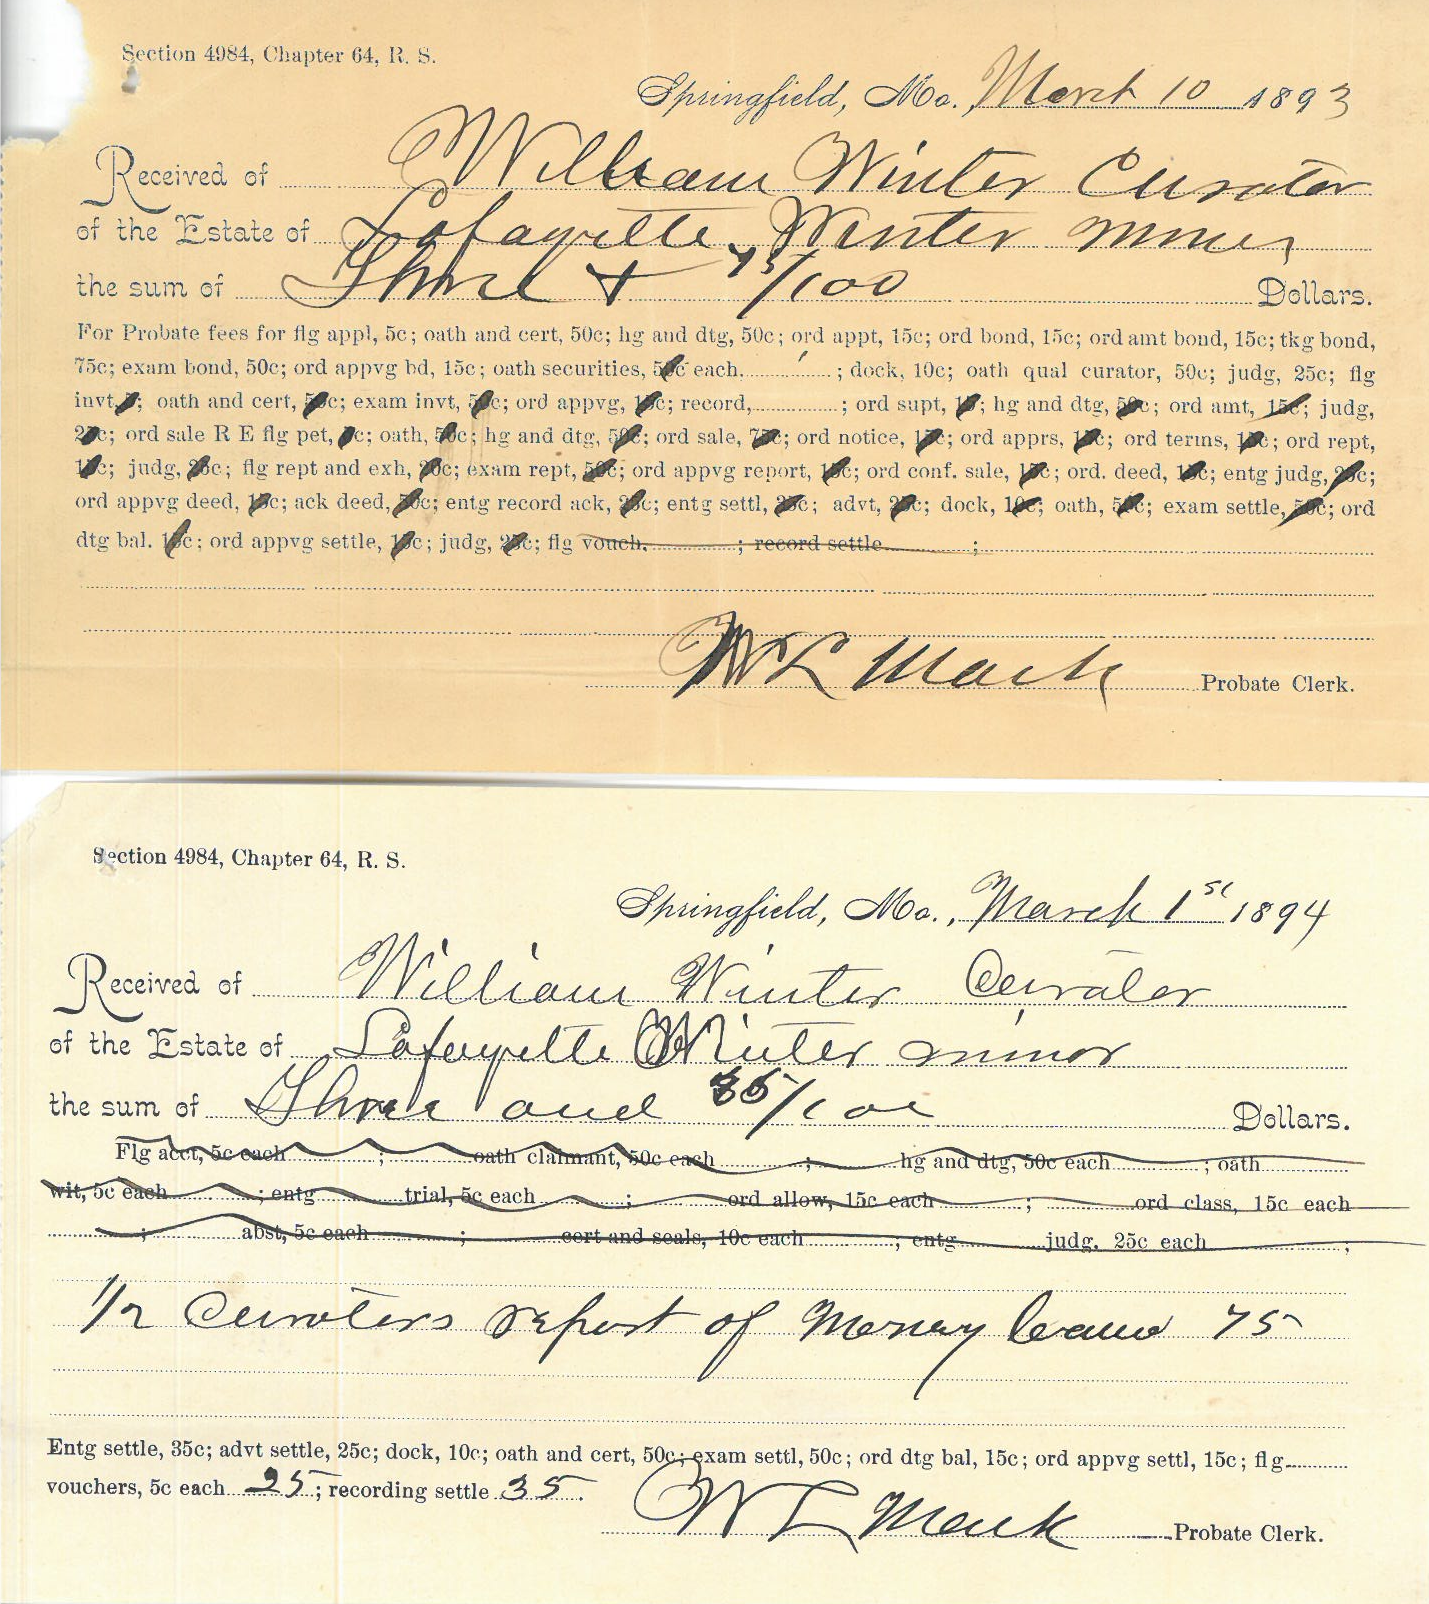 Section 4984, Chapter 64, R. S.
Springfield, Mo., March 10 1893
Received of William Winter Curator
of the Estate of Lafayette Winter minor
the sum of Three + 75/100 Dollars.
For Probate fees for flg appl, 5c; oath and cert, 50c; hg and dtg, 50c; ord appt, 15c; ord bond, 15c; ord amt bond, 15c; tkg bond,
75c; exam bond, 50c; ord appvg bd, 15c; oath securities, 50c each. ; dock, 10c; oath qual curator, 50c; judg, 25c; flg
invt, ; oath and cert, 50c; exam invt, 50c; ord appvg, 15c; record, ; ord supt, 15; hg and dtg, 50c; ord amt, 15c; judg,
25c; ord sale R E flg pet, 5c; oath, 50c; hg and dtg, 50c; ord sale, 75c; ord notice, 15c; ord apprs, 15c; ord terms, 15c; ord rept,
15c; judg, 25c; flg rept and exh, 20c; exam rept, 50c; ord appvg report, 15c; ord conf. sale, 15c; ord. deed, 15c; entg judg, 25c;
ord appvg deed, 15c; ack deed, 50c; entg record ack, 25c; entg settl, 35c; advt, 25c; dock, 10c; oath, 50c; exam settle, 50c; ord
dtg bal. 15c; ord appvg settle, 15c; judg, 25c; flg vouch. ; record settle ;
W L Mack Probate Clerk.
Section 4984, Chapter 64, R. S.
Springfield, Mo., March 1st 1894
Received of William Winter Curator
of the Estate of Lafayette Winter minor
the sum of Three and 35/100 Dollars.
Flg acct, 5c each ; oath claimant, 50c each ; hg and dtg, 50c each ; oath
wit, 5c each ; entg trial, 5c each ; ord allow, 15c each ; ord class, 15c each
; abst, 5c each ; cert and seals, 10c each ; entg judg. 25c each ;
1/2 Curators report of Money loaned 75
Entg settle, 35c; advt settle, 25c; dock, 10c; oath and cert, 50c; exam settl, 50c; ord dtg bal, 15c; ord appvg settl, 15c; flg
vouchers, 5c each 25; recording settle 35.
W L Mack Probate Clerk.